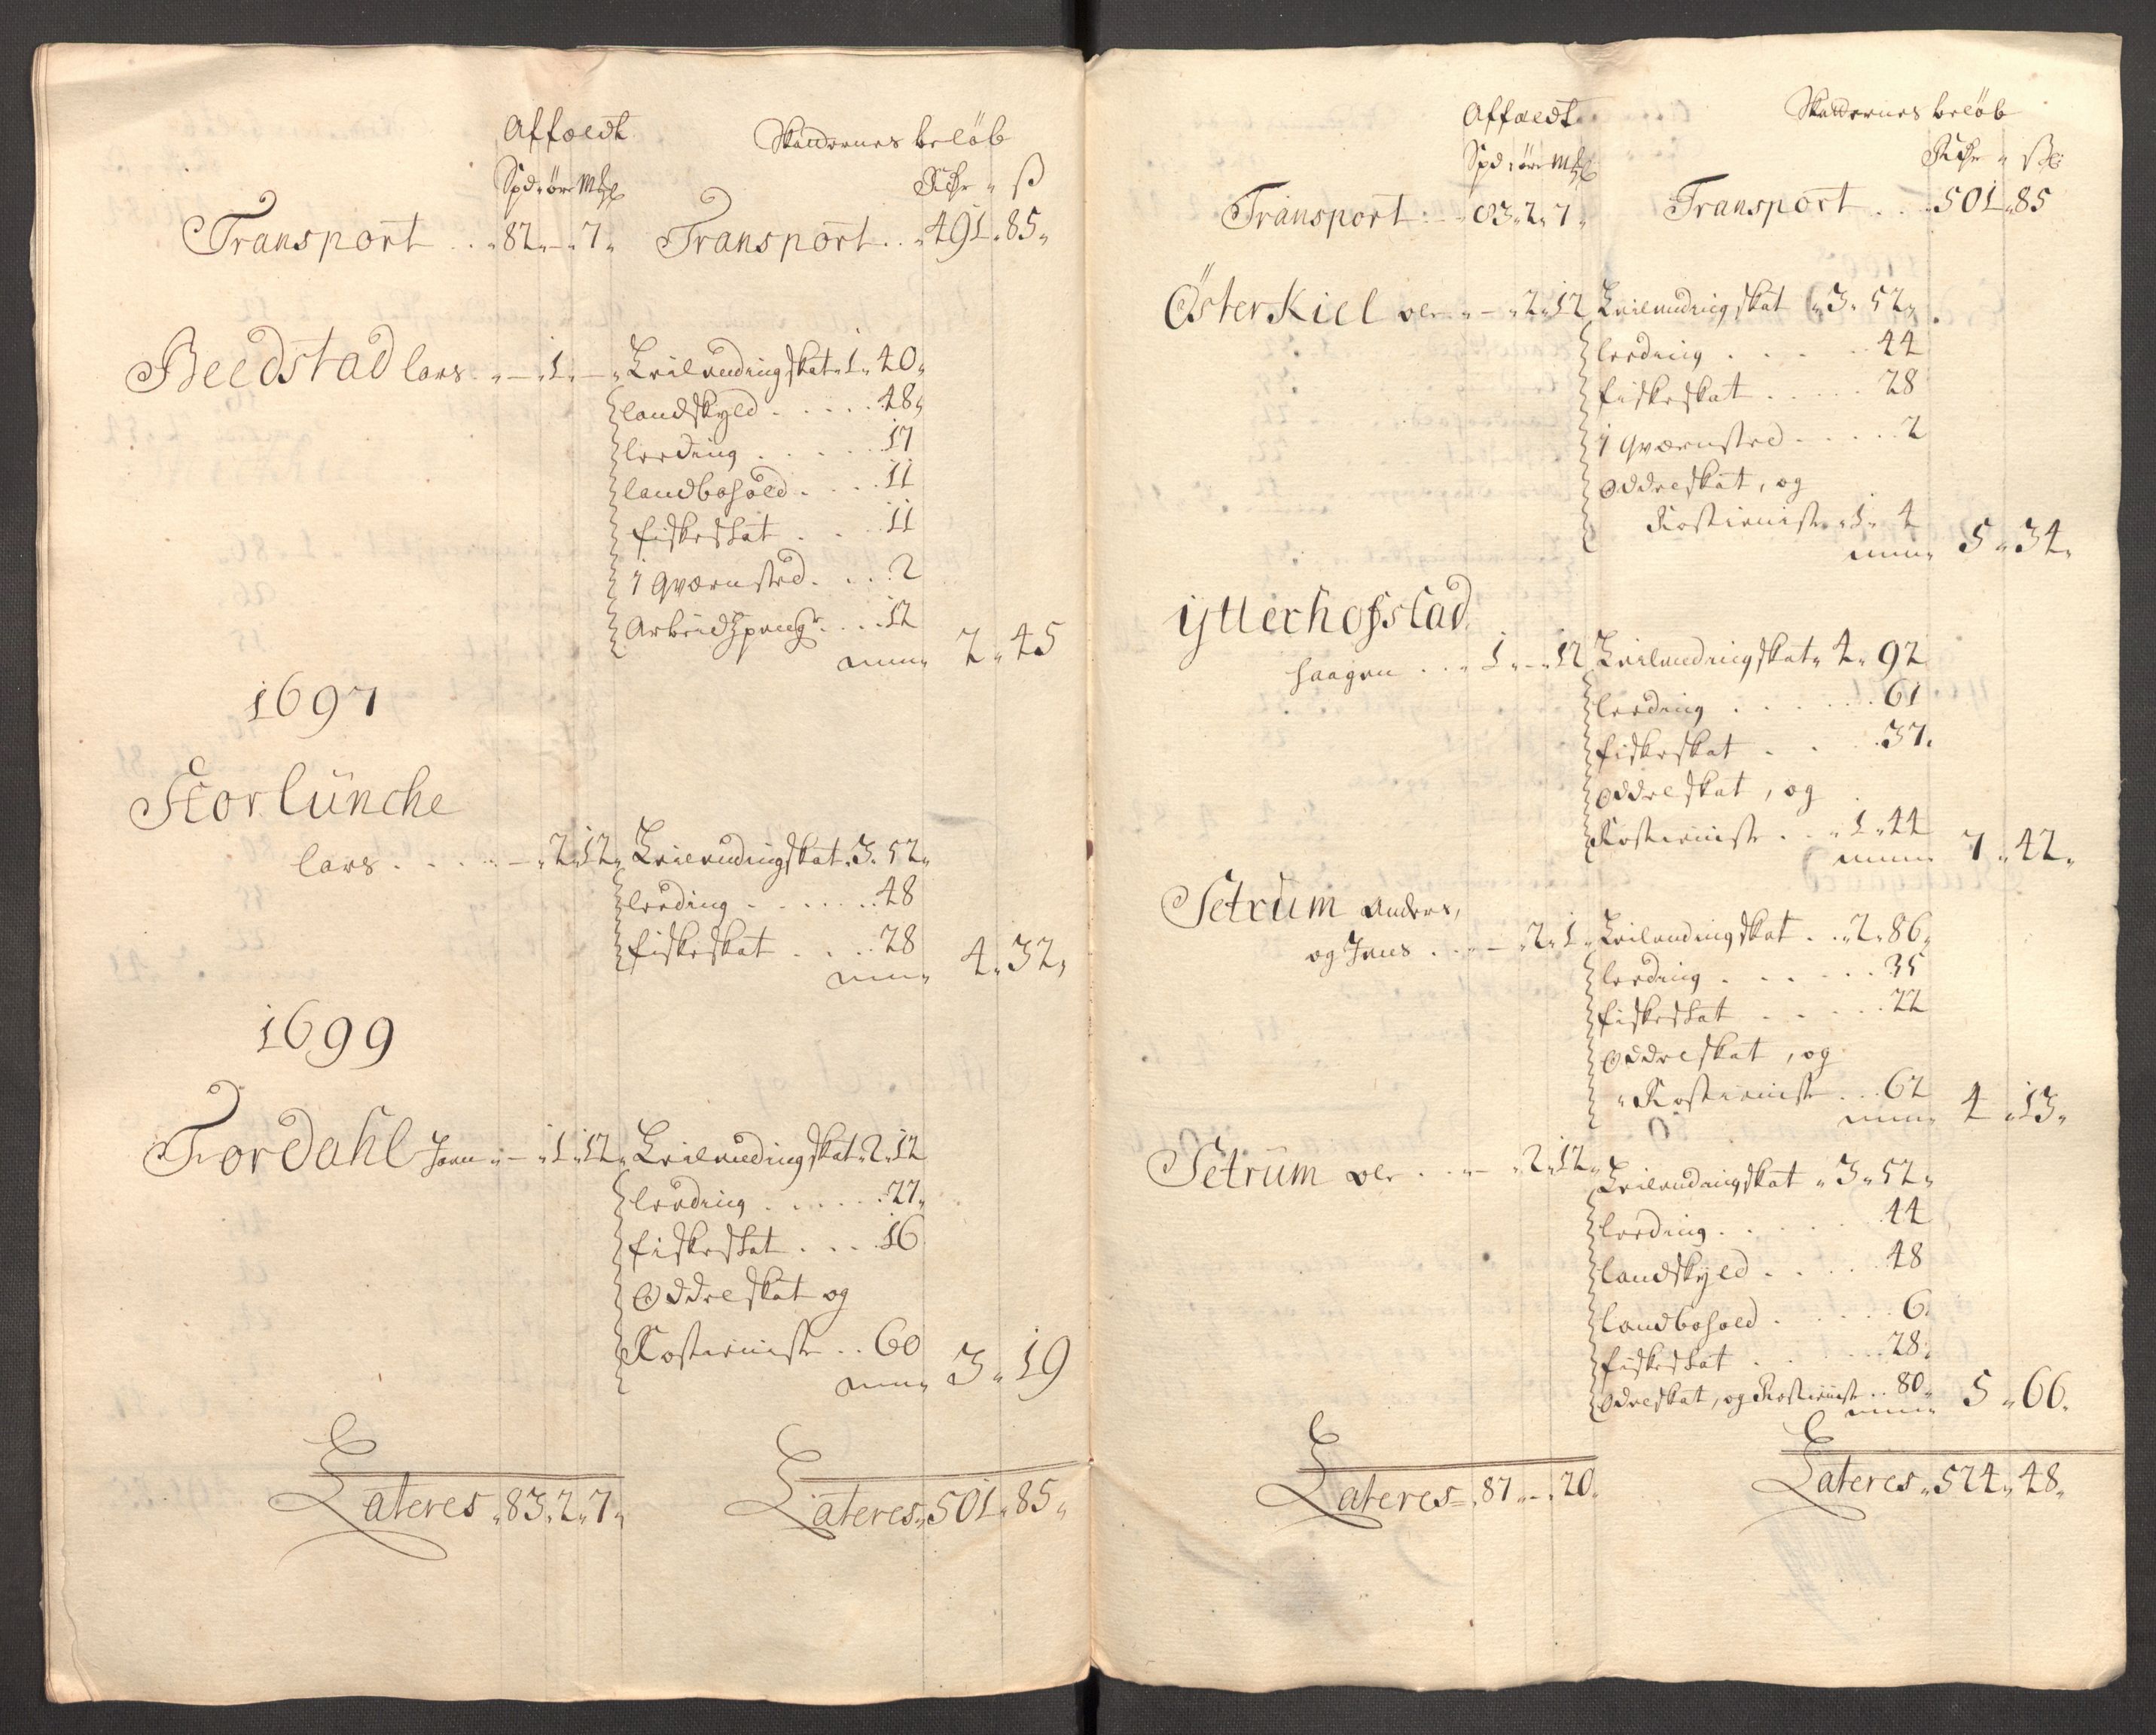 Affældt Skatternes beløb
Spd: øre Mkl Rdr " ß
Transport . . " 82 " – " 7 " Transport . . " 491 " 85 "
Beedstad lars . " – " 1 " – " Leilendingskat " 1 " 40 "
landskyld . . . . . 48 "
leeding . . . . . 17
landbohold . . . . 11
fiskeskat . . . 11
1 qværnsted . . . 2
Arbeidspenge . . . 12
2 " 45
1697
Storlünche
lars . . . . " – " 2 " 12 " Leilendingskat " 3 " 52 "
leeding . . . . . . 48
fiskeskat . . . . 28
4 " 32 "
1699
Fordahl Joen " – " 1 " 12 " Leilendingskat " 2 " 12
leeding . . . . . 27 "
fiskeskat . . . 16
Oddreskat og
Rostieniste . . 60
3 " 19
Lateres " 83 " 2 " 7 " Lateres " 501 " 85 "
Affældt Skatternes beløb
Spd: øre Mkl Rdr " ß
Transport . . 83 " 2 " 7 " Transport . . . 501 " 85
Öster Kiel ole " – " 2 " 12 Leilendingskat " 3 " 52 "
leeding . . . . . 44
fiskeskat . . . . . 28
1 qværnsted . . . . . 2
Oddreskat, og
Rostieniste " 1 " 4
5 " 34 "
ytterhofstad
haagen . . " 1 " – " 12 Leilendingskat " 4 " 92
leeding . . . . . . 61
fiskeskat . . . . 37 "
Oddreskat, og
Rostieniste . . " 1 " 44
7 " 42 "
Setrum Anders,
og Jens . . . " – " 2 " 1 " Leilendingskat . . " 2 " 86 "
leeding . . . . . . 35
fiskeskat . . . . . 22
Oddreskat, og
" Rostieniste . . 62
4 " 13 "
Setrum ole . . . " – " 2 " 12 " Leilendingskat " 3 " 52 "
leeding . . . . . 44
landskyld . . . . 48
landbohold . . . . . 6 "
fiskeskat . . . . . 28 "
Odreskat, og Rostieniste . . 80 "
5 " 66 "
Lateres " 87 " – " 20 " Lateres " 524 " 48 "